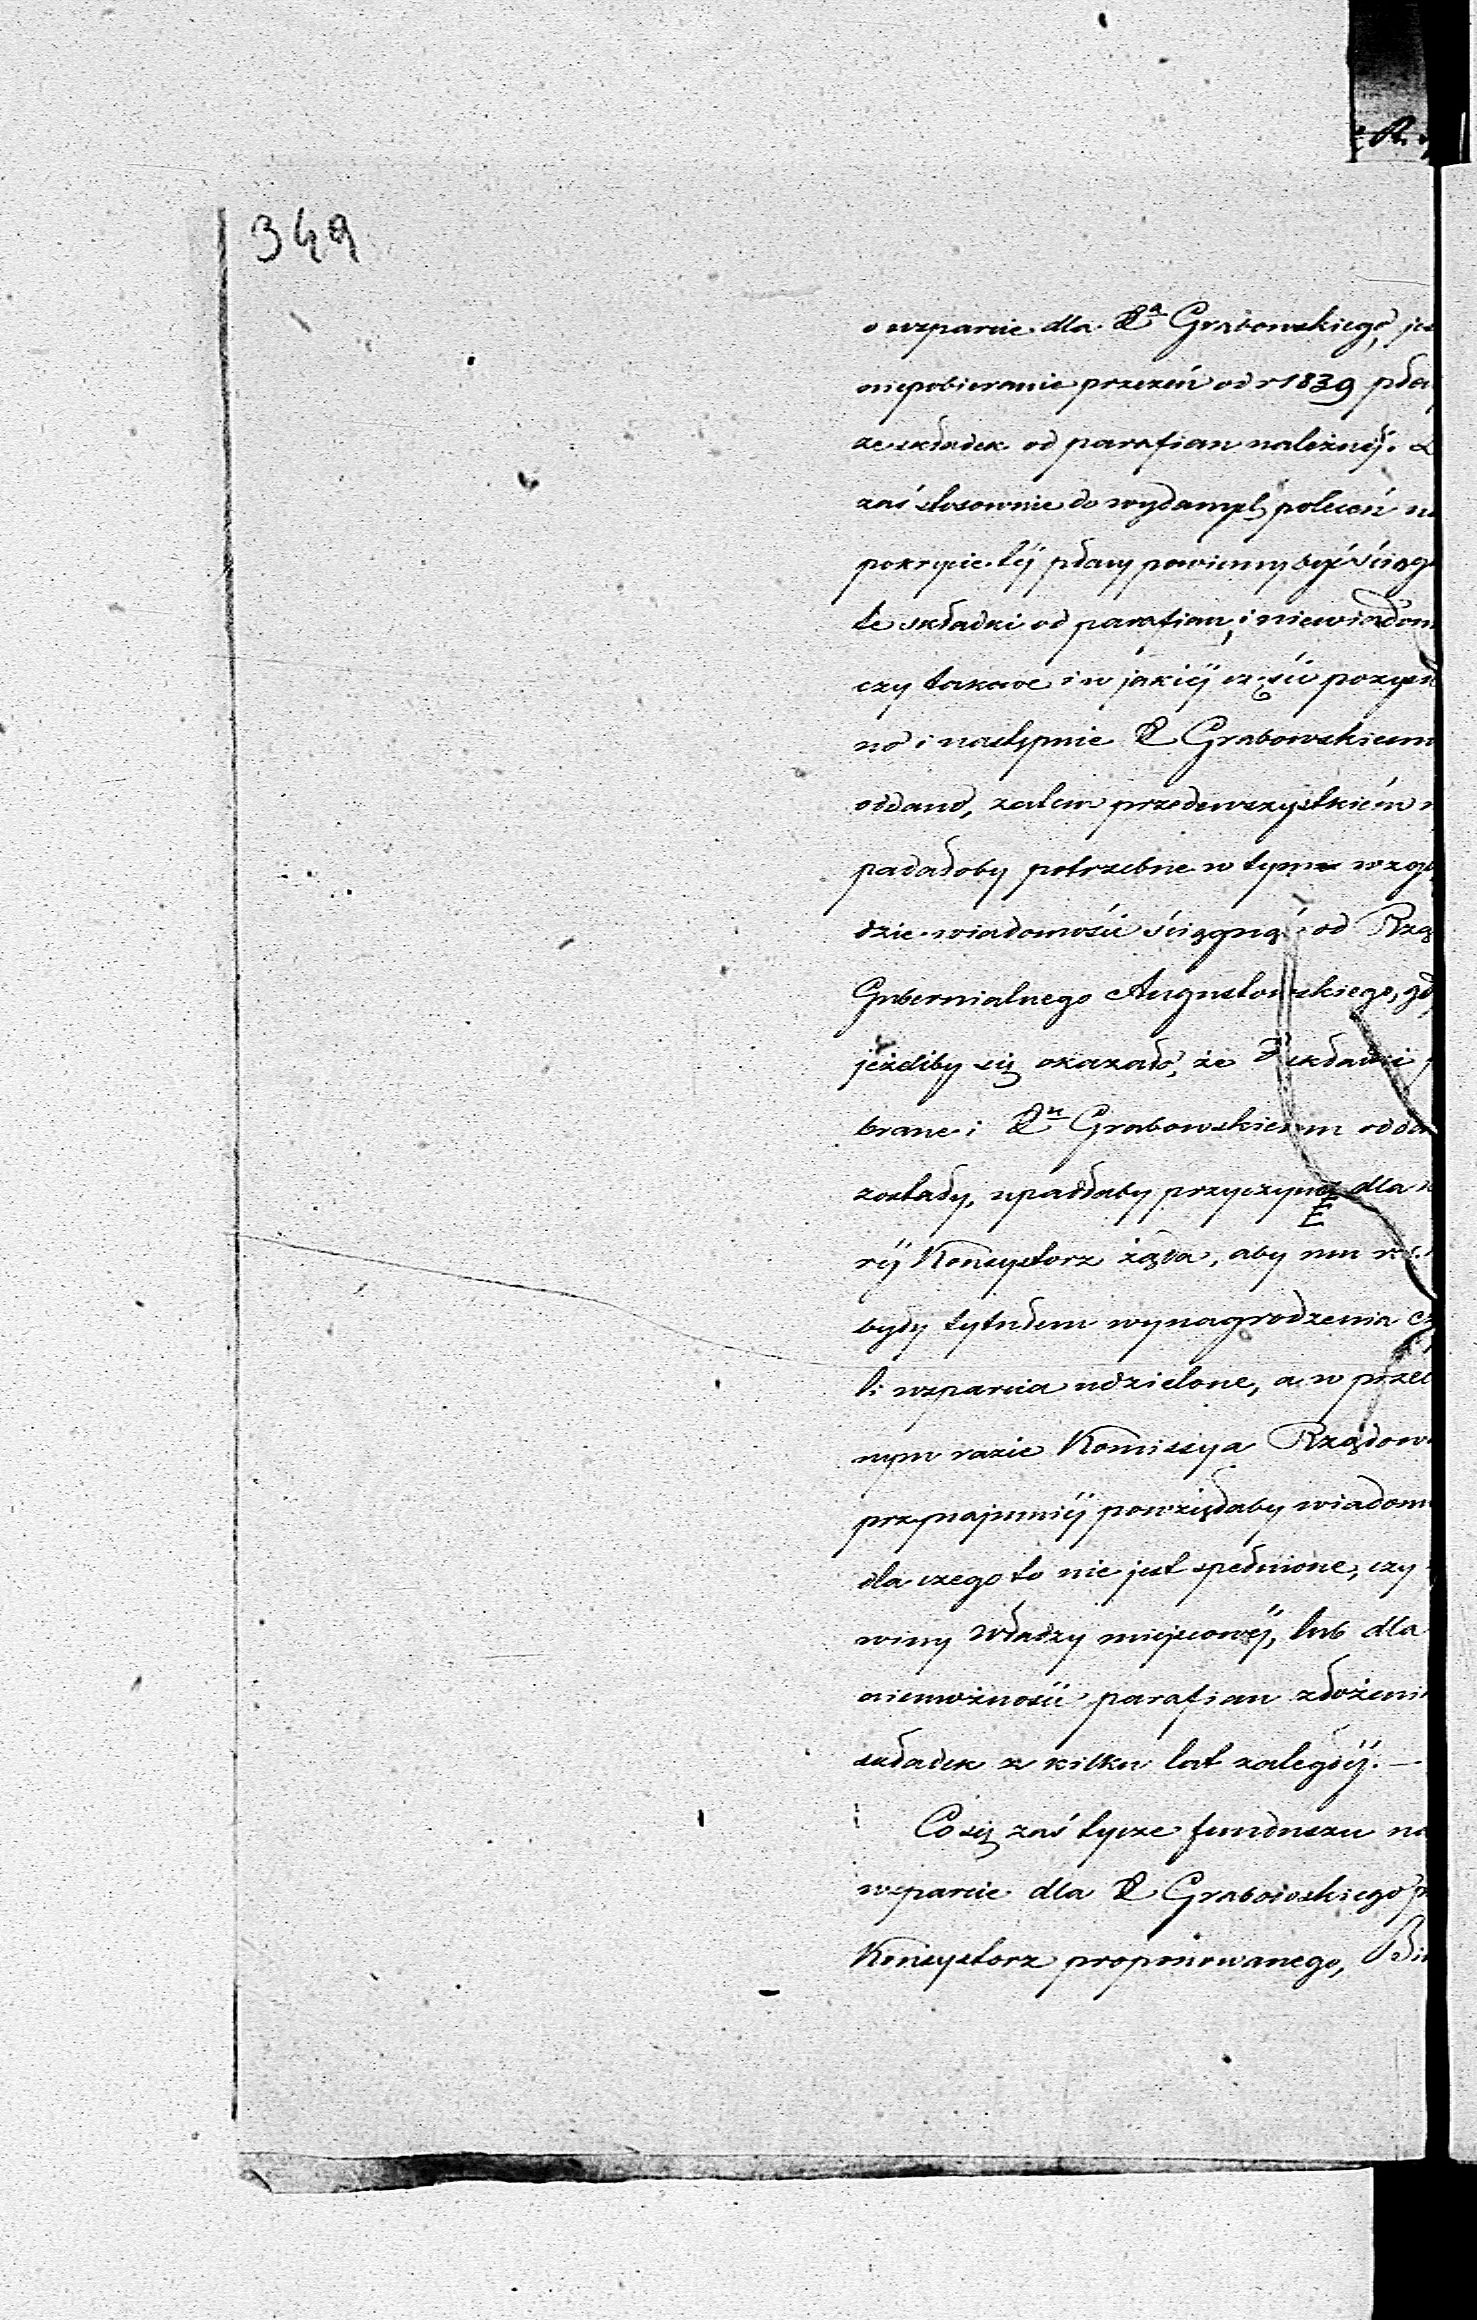 349
o wsparcie dla Xa Grabowskiego, jes
niepobieranie przezeń od r 1839 płac
ze składek od parafian należnéj.
zaś stosownie do wydanych poleceń na
pokrycie téj płacy powinny być ściąg
te składki od parafian, i niewiadom
czy takowe i w jakiéj części pozysk
no i następnie X Grabowskiemu
oddano, zatem przedewszystkiém
padałoby potrzebne w tym wzglę
dzie wiadomości ściągnąć od Rzą
Gubernialnego Augustowskiego, gd
jeżeliby się okazało, że składki
brane i Xu Grabowskiemu odda
zostały, upadłaby przyczyna dla
réj Konsystorz żąda, aby mu
były tytułem wynagrodzenia cz
li wsparcia udzielone, a w przec
nym razie Komissya Rządow
przynajmniéj powzięłaby wiadomo
dla czego to nie jest spełnione, czy
winy Władzy miejscowéj, lub dla
niemożności parafian złożenia
składek z kilku lat zaległéj. —
Co się zaś tycze funduszu na
wsparcie dla X Grabowskiego p
Konsystorz proponowanego, Bi